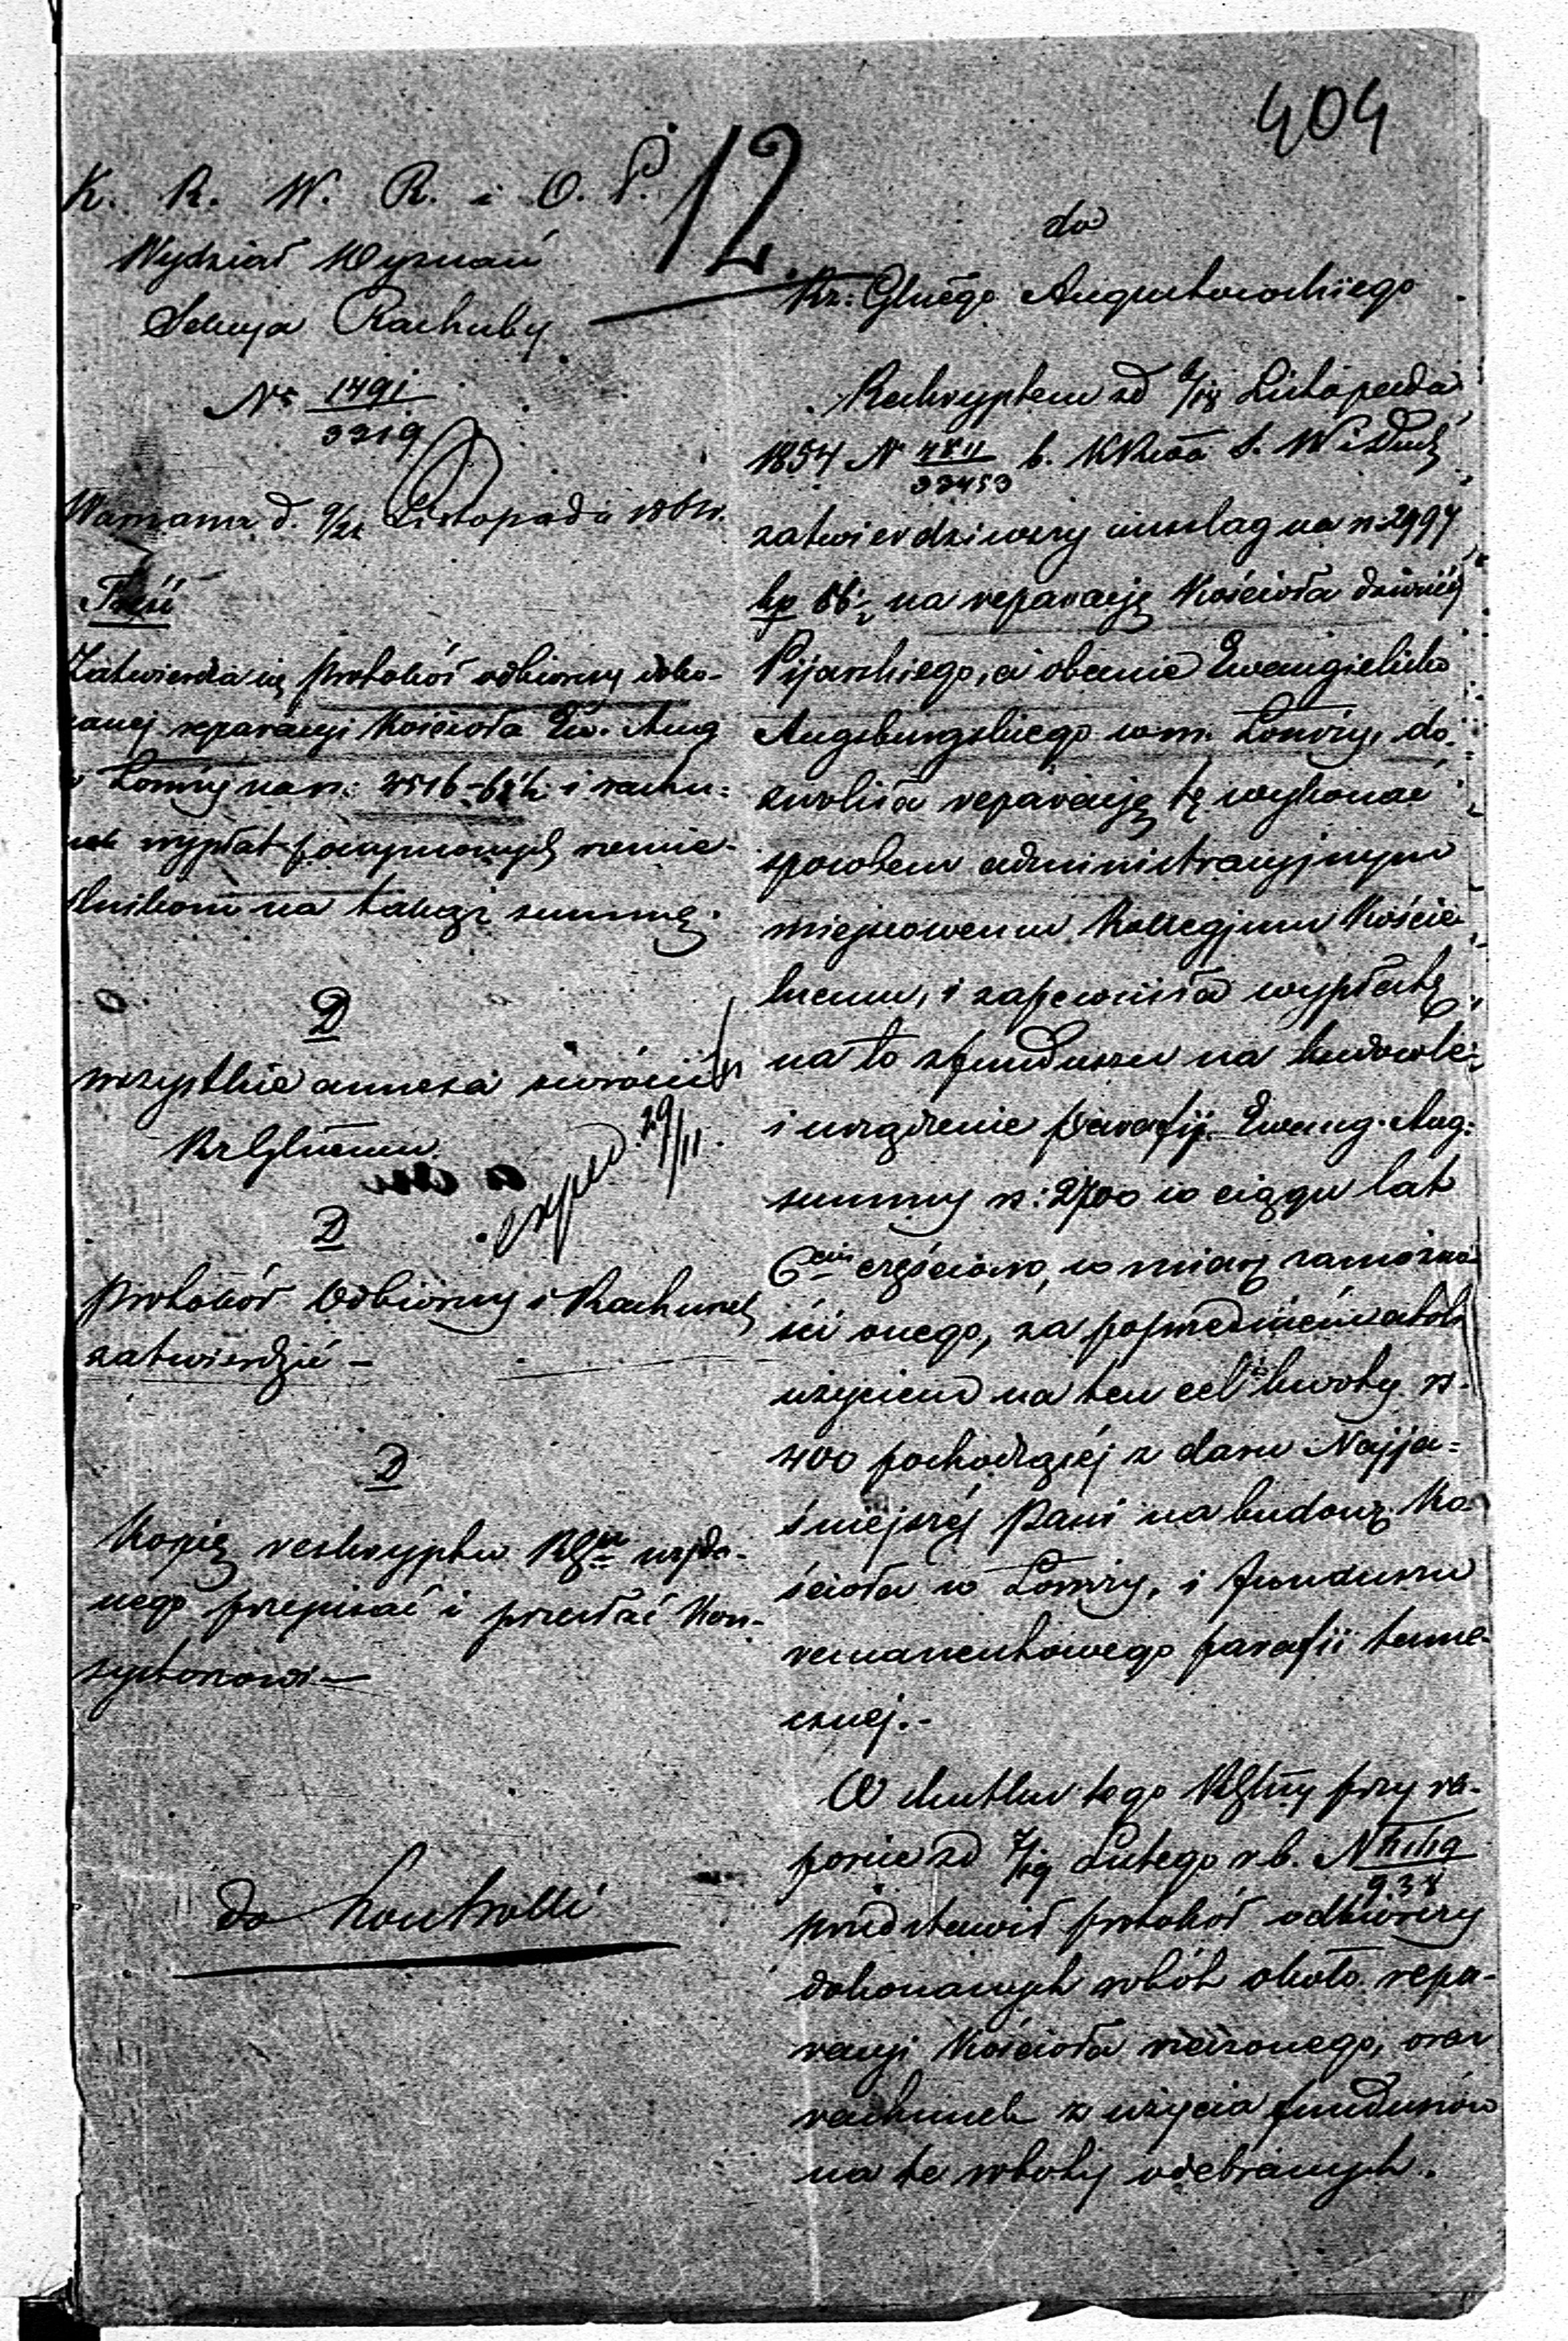 404
12.
K. R. W. R. i O. P.
Wydział Wyznań
Sekcya Rachuby
№ 1491/3319
Warszawa d. 9/21 Listopada
Treść
Zatwierdza się protokół odbiorczy doko-
nanej reparacyi Kościoła Ew. Aug
w Łomży na rs: i rachu-
nek wypłat poczynionych rzemie-
ślnikom na takąż summę.
D
wszystkie annexa zwrócić
Rz Glnemu.
exped. 29/11.
D
protokół Odbiorczy i Rachunek
zatwierdzić –
D
Kopię reskryptu wyda-
nego przepisać i przesłać Kon-
systorowi –
do Kontrolli
do
Rz: Glnego Augustowskiego
Reskryptem od 6/18 Listopada
1854 № b. KRząa S. W i Duch
zatwierdziwszy anszlag na rs: 2994
kp na reparacyę Kościoła dawniej
Pijarskiego, a obecnie Ewangielicko
Augsburgskiego w m. Łomży, do-
zwoliła reparacyę tę wykonać
sposobem administracyjnym
miejscowemu Kollegjum Kościel-
nemu, i zapewniła wypłatę
na to z funduszu na budowle
i urządzenie parafij Ewang. Aug:
summy rs: 2700 w ciągu lat
6ciu częściowo, w miarę zamożno-
ści onego, za poprzedniém atoli
użyciem na ten cel kwoty rs.
400 pochodzącéj z daru Najja-
śniejszéj Pani na budowę Ko-
ścioła w Łomży, i funduszu
remanentowego parafii tame-
cznej. –
W skutku tego Rząd Glny przy ra-
porcie od 7/19 Lutego r. b. №
przedstawił protokół odbiorczy
dokonanych robót około repa-
racyi Kościoła rzeczonego, oraz
rachunek z użycia funduszów
na te roboty odebranych.